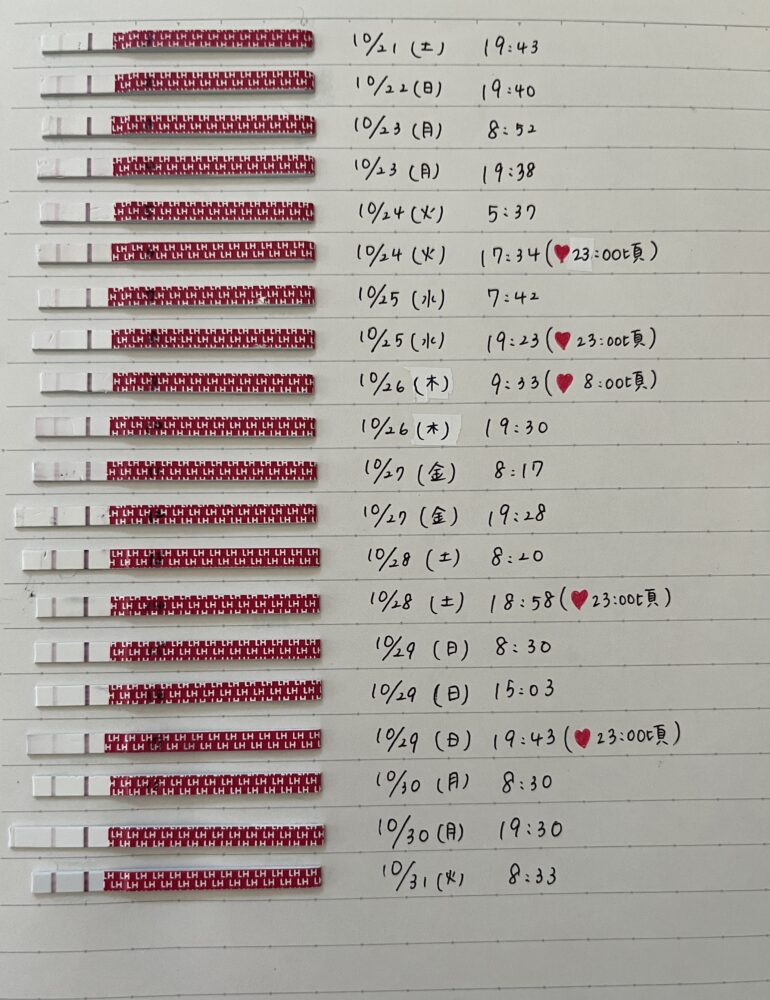 10/21 (土) 19:43
10/22 (日) 19:40
10/23 (月) 8:52
10/23 (月) 19:38
10/24 (火) 5:37
10/24 (火) 17:34 (♥ 23:00頃)
10/25 (水) 7:42
10/25 (水) 19:23 (♥ 23:00頃)
10/26 (木) 9:33 (♥ 8:00頃)
10/26 (木) 19:30
10/27 (金) 8:17
10/27 (金) 19:28
10/28 (土) 8:20
10/28 (土) 18:58 (♥ 23:00頃)
10/29 (日) 8:30
10/29 (日) 15:03
10/29 (日) 19:43 (♥ 23:00頃)
10/30 (月) 8:30
10/30 (月) 19:30
10/31 (火) 8:33